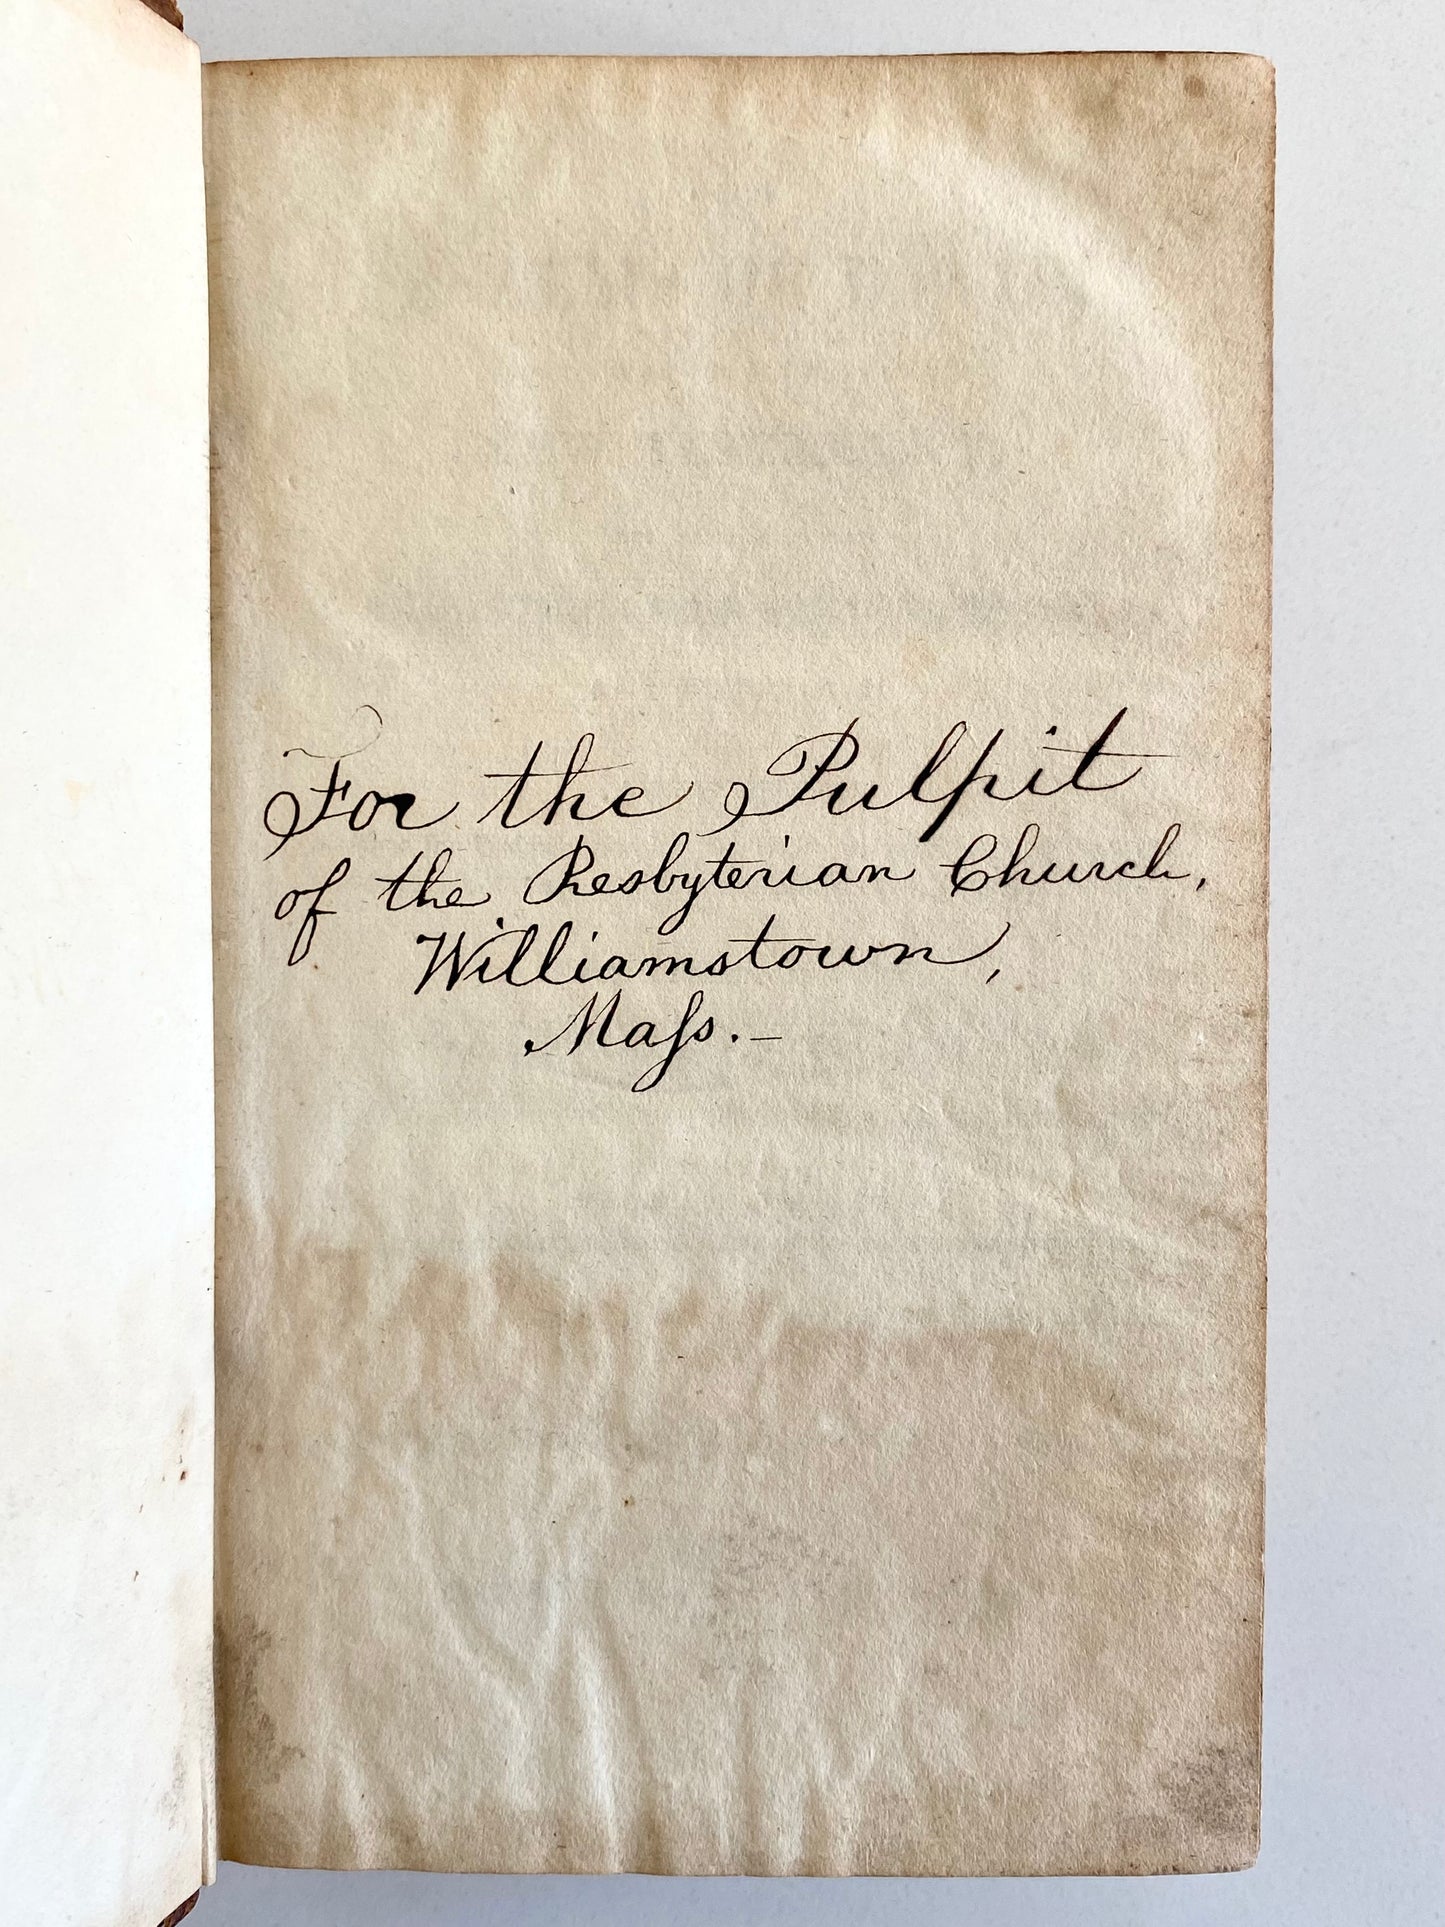 For the Pulpit
of the Presbyterian Church,
Williamstown,
Maſs. —